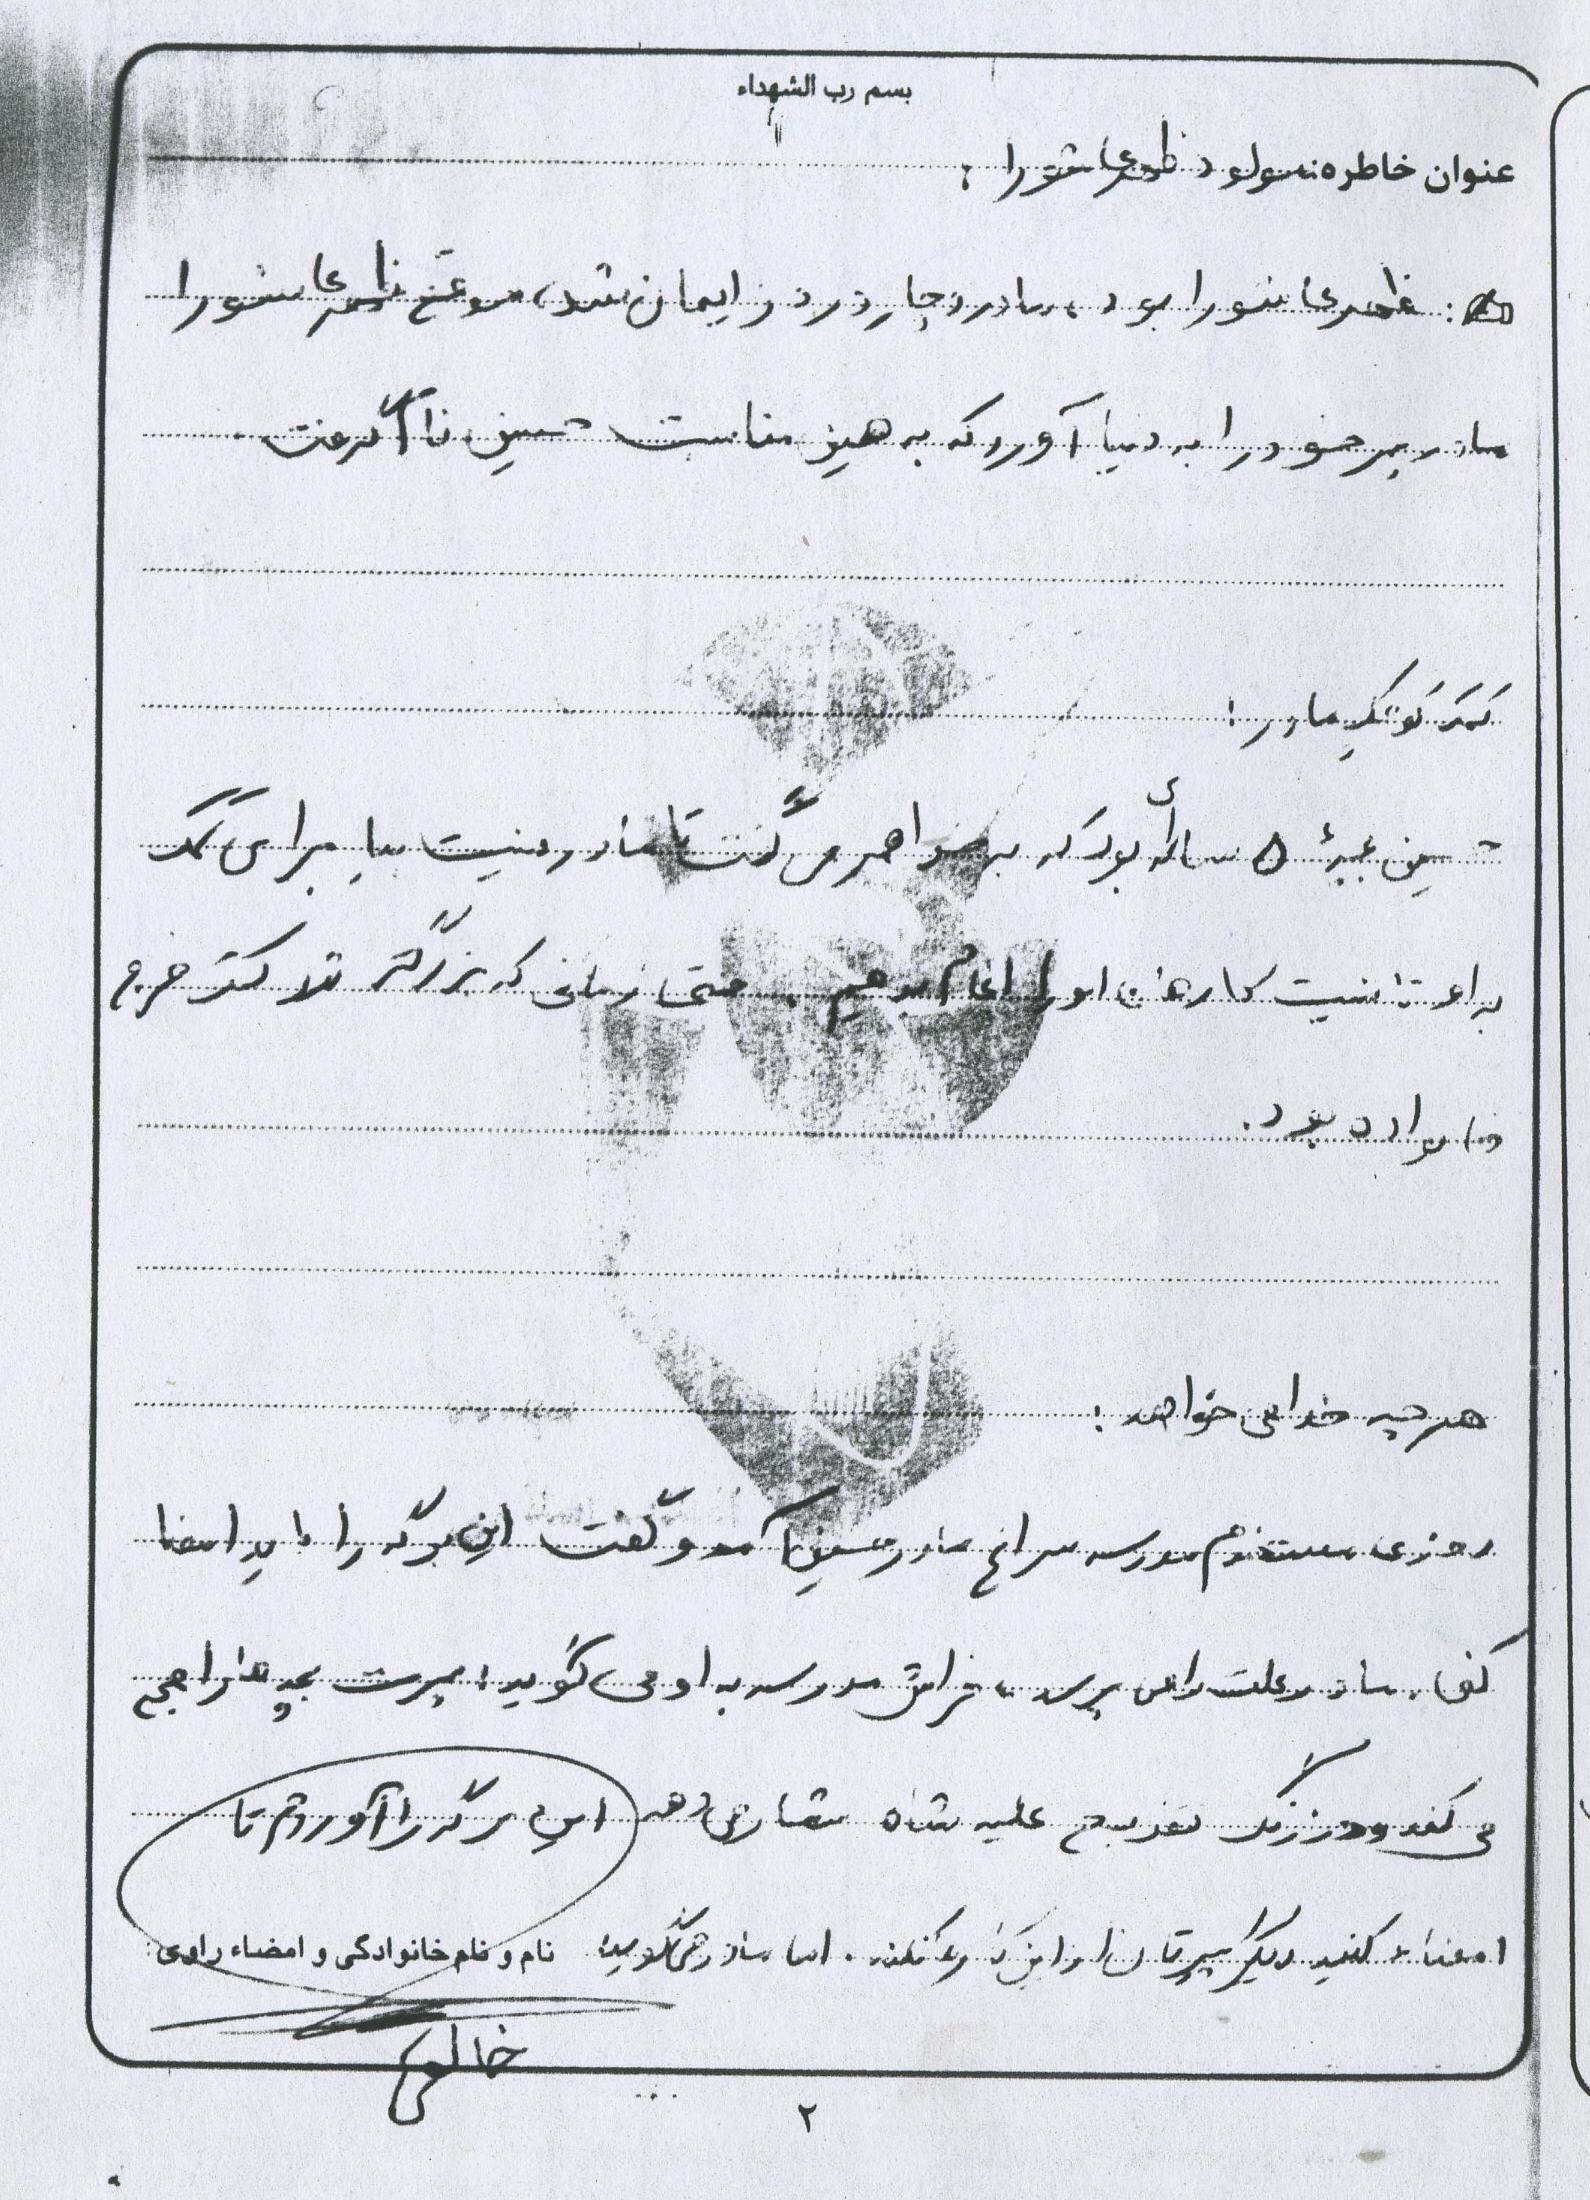 بسم رب الشهداء
عنوان خاطره: مولود ظهر عاشورا:
ظهر عاشورا بود، مادر دچار درد زایمان شد، موقع ظهر عاشورا
مادر پسر خود را به دنیا آورد که به همین مناسبت حسین نام گرفت.
کمک کوچک مادر:
حسین بچهٔ ۵ ساله‌ای بود که به خواهر می گفت تا مادر نیست بیا برای کمک
به او تا نیست کارهای او را انجام بدهیم. حتی زمانی که بزرگتر شد کمک خرج
خانواده بود.
هر چه خدا می خواهد:
روزی مستخدم مدرسه سراغ مادر حسین آمد و گفت این برگه را باید امضا
کنی. مادر علت را می پرسد، فراش مدرسه به او می گوید: پسرت بچه ها را جمع
می کند و در زنگ تفریح علیه شاه شعار می دهد این برگه را آوردم تا
امضاء کنید دیگر پسرتان از این کارها نکند. اما مادر می گوید:
نام و نام خانوادگی و امضاء راوی:
۲